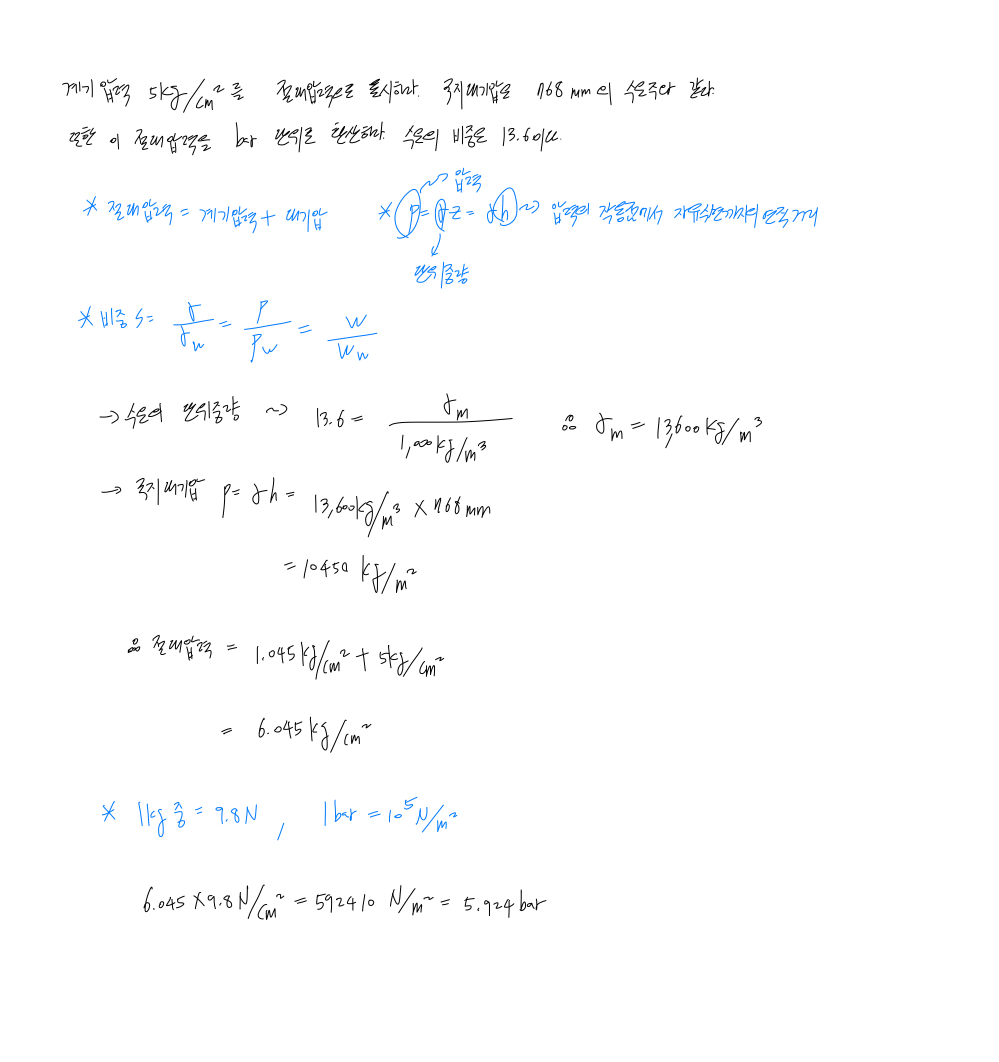 계기압력 5kg/cm²를 절대압력으로 표시하라. 국지대기압은 768mm의 수은주와 같다.
또한 이 절대압력을 bar 단위로 환산하라. 수은의 비중은 13.6이다.
압력
* 절대압력 = 계기압력 + 대기압 * p = γz = γh ~> 압력의 작용점에서 자유수면까지의 연직거리
단위중량
* 비중 S = γ/γw = ρ/ρw = w/ww
→ 수은의 단위중량 ~> 13.6 = γm / 1,000kg/m³ ∴ γm = 13,600kg/m³
→ 국지대기압 p = γh = 13,600kg/m³ × 768mm
= 10450 kg/m²
∴ 절대압력 = 1.045kg/cm² + 5kg/cm²
= 6.045kg/cm²
* 1kg중 = 9.8N , 1bar = 10⁵N/m²
6.045×9.8N/cm² = 592410 N/m² = 5.924bar